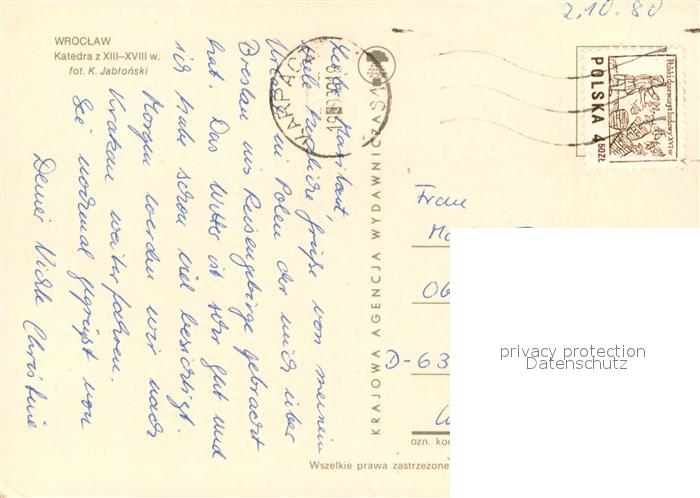 2.10.80
WROCŁAW
Katedra z XIII–XVIII w.
fot. K. Jabłoński
Grüße von meinem
Urlaub in Polen der mich über
Breslau ins Riesengebirge gebracht
hat. Das Wetter ist sehr gut und
ich habe schon viel besichtigt.
Morgen werden wir nach
Krakau weiterfahren.
Sei nochmal gegrüßt von
Deiner Nichte Christine
KARPACZ
KRAJOWA AGENCJA WYDAWNICZA
POLSKA 4
50ZŁ
Frau
D-63
ozn. ko
Wszelkie prawa zastrzeżone
privacy protection
Datenschutz